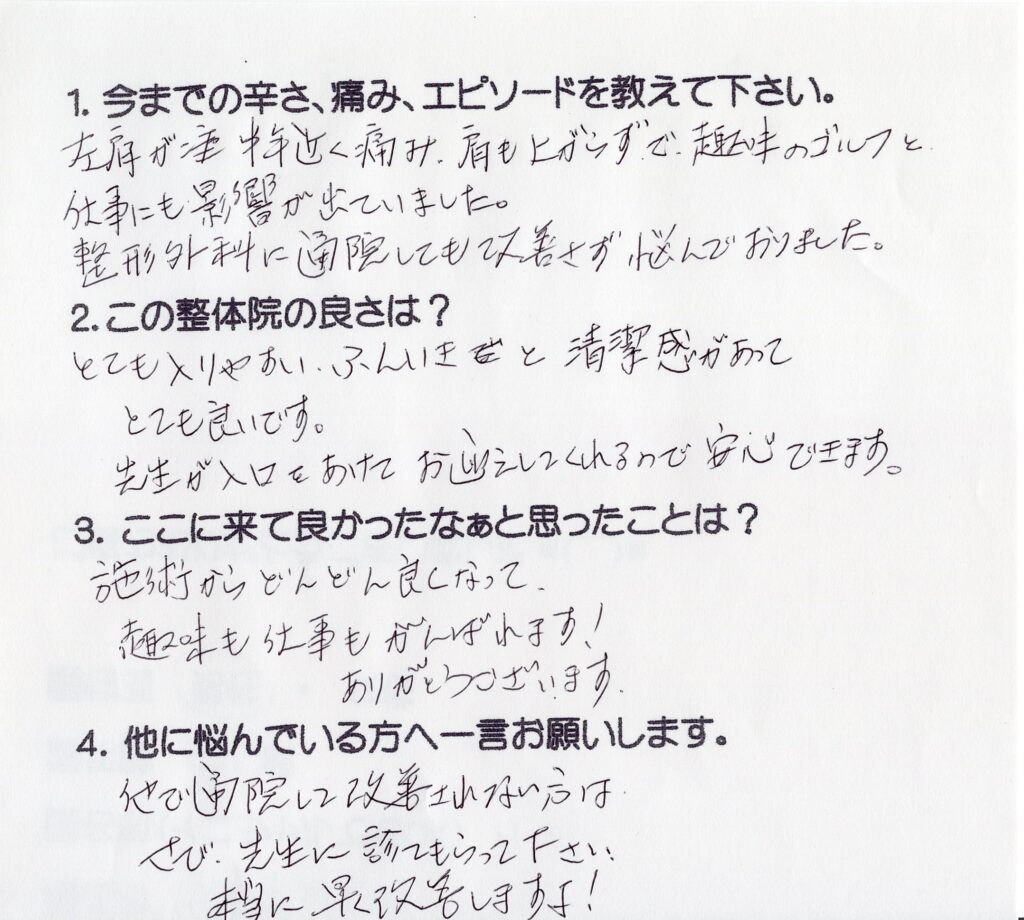 1. 今までの辛さ、痛み、エピソードを教えて下さい。
左肩が 半年近く痛み、肩も上がらずで、趣味のゴルフと
仕事にも影響が出ていました。
整形外科に通院しても改善さず悩んでおりました。
2. この整体院の良さは？
とても入りやすい、ふんいき と 清潔感があって
とても良いです。
先生が入口をあけて お迎えしてくれるので 安心できます。
3. ここに来て良かったなぁと思ったことは？
施術からどんどん良くなって、
趣味も仕事もがんばれます！
ありがとうございます。
4. 他に悩んでいる方へ一言お願いします。
他で通院して改善されない方は
、先生に診てもらって下さい。
本当に早く改善しますよ！